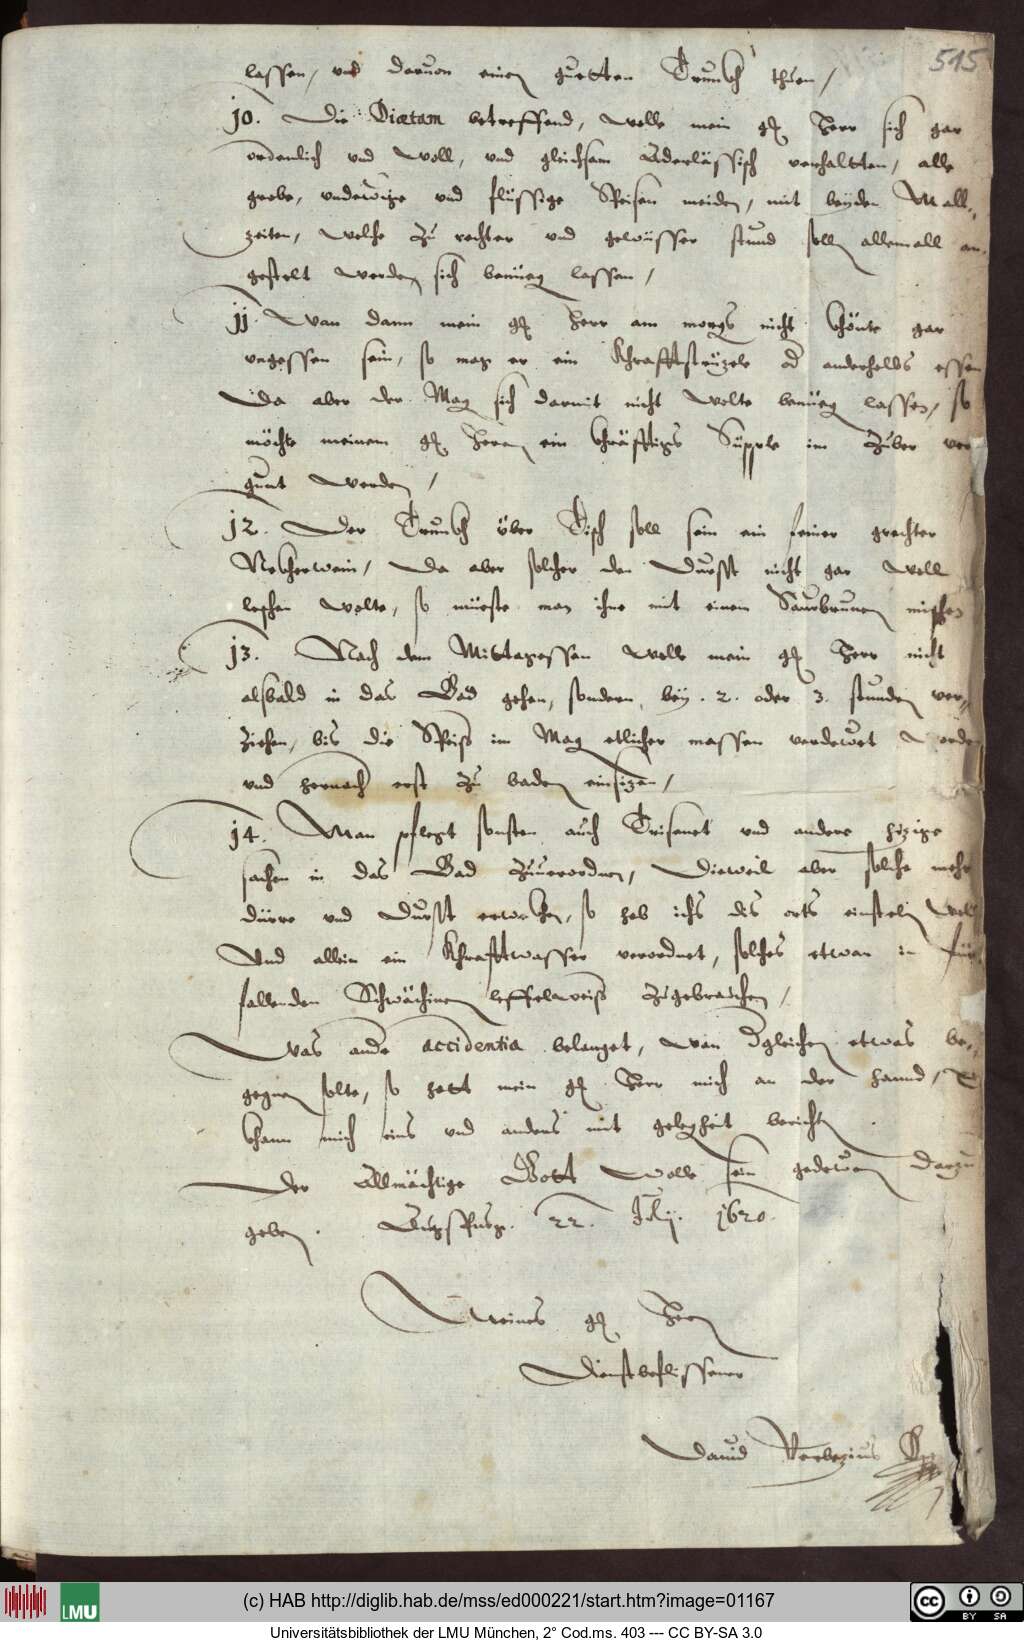 515
lassen, und daruon einen guetten Trunkh thuen,
10. Die Diætam betreffend, wolle mein gl Herr sich gar
ordenlich und woll, und gleichsam Aderlässisch verhaltten, alle
grobe, undewige und flüssige Speisen meiden, mit beyden Mall-
zeiten, welche zu rechter und gewüsser stund solln allemall an-
gestelt werden sich benüeg lassen,
11. Wan dann mein gl Herr am morgs nicht khönte gar
ungessen sein, so mag er ein Khrafftstrüzele od anderhalbs essen
Da aber der Mag sich darmit nicht wolte benüeg lassen, so
möchte meinem gl Herrn ein khräfftigs Süpple im Zuber ver
gunt werden,
12. Der Trunkh über Tisch soll sein ein feiner grechter
Nekherwein, Da aber solcher den Durst nicht gar woll
leschen wolte, so müeste man ihne mit einem Saurbrunen mischen
13. Nach dem Mittagessen wolle mein gl Herr nicht
alsbald in das Bad gehen, sondern bey .2. oder 3. stunden ver-
ziehen, bis die Speiß im Mag etlicher massen verdewet werden
und hernach erst zu baden einsizen,
14. Man pflegt sonsten auch Trisenet und andere hizige
sachen in das Bad zuuerordnen, Dieweil aber solche mehr
dürre und Durst erwekhen, so hab ichs dis orts einsteln woll
Und allein ein Khrafftwasser verordnet, solches etwan in für
fallenden Schwächinen leffelweiß zugebrauchen,
Was ande accidentia belanget, wan dgleichen etwas be-
gegnen solte, so hatt mein gl Herr mich an der hannd,
khann mich eins und anders mit gelegheit berichten
Der Allmächtige Gott wolle sein gedewen darzu
geben. Augspurg. 22. Julij. 1620.
Meines gl Hern
Dienstbeflissener
Dauid Verbezius D
(c) HAB http://diglib.hab.de/mss/ed000221/start.htm?image=01167
LMU
CC BY SA
Universitätsbibliothek der LMU München, 2° Cod.ms. 403 --- CC BY-SA 3.0